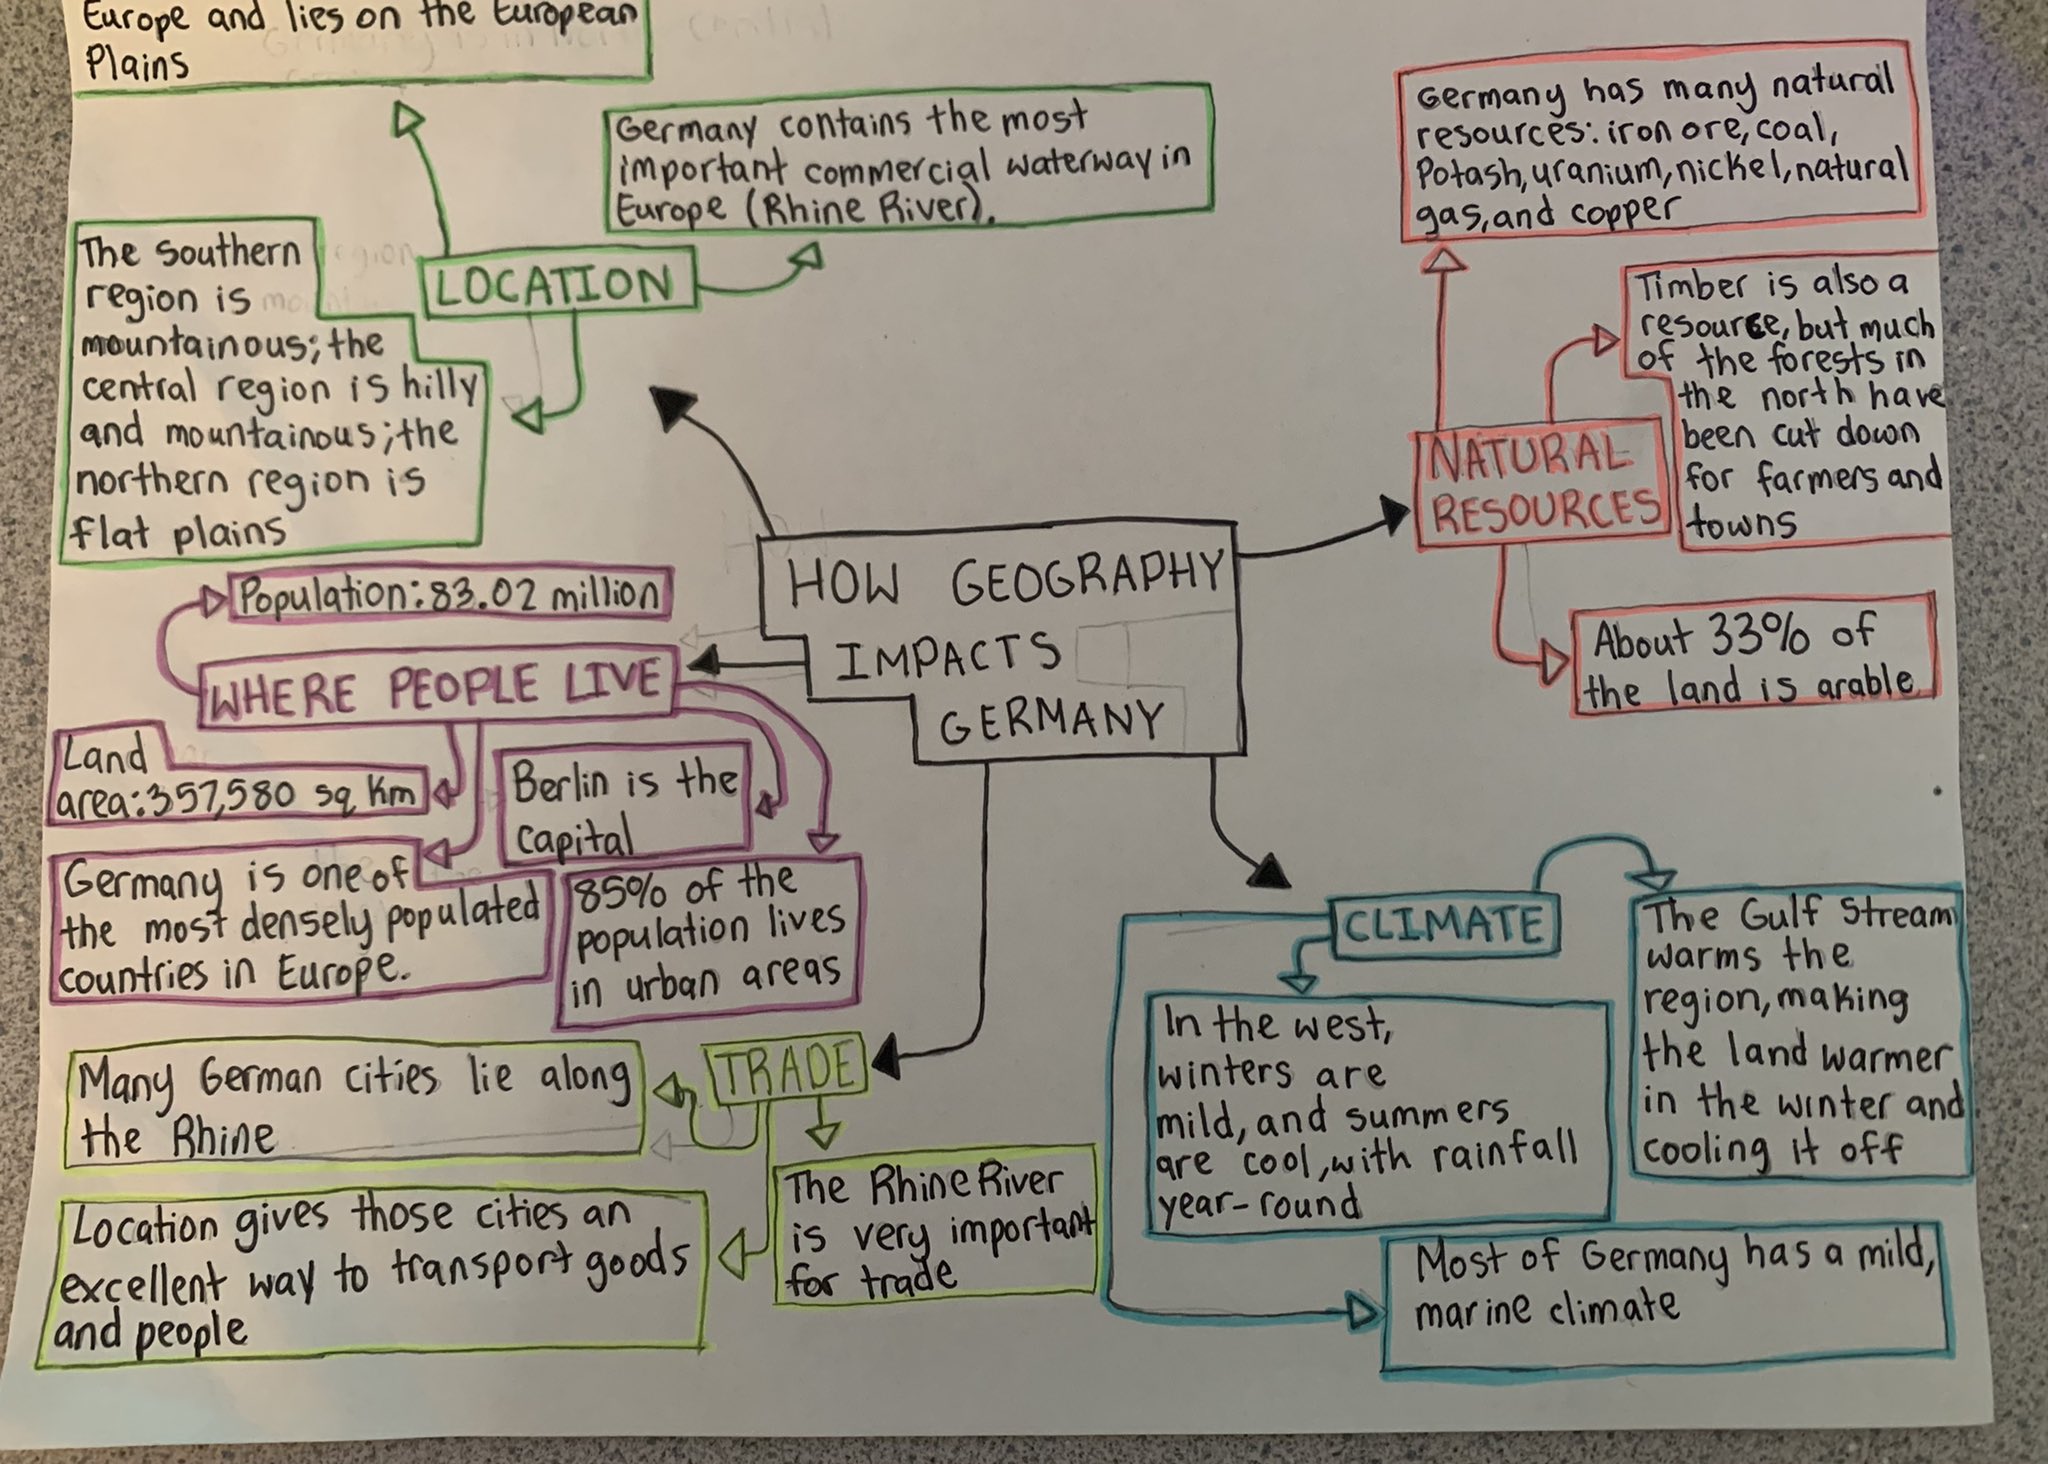 Europe and lies on the European
Plains
Germany contains the most
important commercial waterway in
Europe (Rhine River).
LOCATION
The southern
region is
mountainous; the
central region is hilly
and mountainous; the
northern region is
flat plains
Germany has many natural
resources: iron ore, coal,
Potash, uranium, nickel, natural
gas, and copper
Timber is also a
resource, but much
of the forests in
the north have
been cut down
for farmers and
towns
NATURAL
RESOURCES
About 33% of
the land is arable
HOW GEOGRAPHY
IMPACTS
GERMANY
Population: 83.02 million
WHERE PEOPLE LIVE
Land
area: 357,580 sq km
Berlin is the
capital
Germany is one of
the most densely populated
countries in Europe.
85% of the
population lives
in urban areas
TRADE
Many German cities lie along
the Rhine
The Rhine River
is very important
for trade
Location gives those cities an
excellent way to transport goods
and people
CLIMATE
The Gulf Stream
warms the
region, making
the land warmer
in the winter and
cooling it off
In the west,
winters are
mild, and summers
are cool, with rainfall
year-round
Most of Germany has a mild,
marine climate